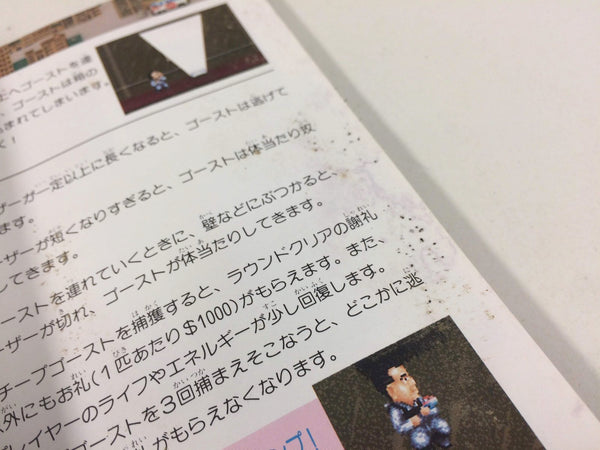 上へゴーストを連
、ゴーストは箱の
まれてしまいます。
く！
ザーが一定以上に長くなると、ゴーストは逃げて
ます。
ザーが短くなりすぎると、ゴーストは体当たり攻
してきます。
ーストを連れていくときに、壁などにぶつかると、
ーザーが切れ、ゴーストが体当たりしてきます。
チーブゴーストを捕獲すると、ラウンドクリアの謝礼
外にもお礼(1匹あたり$1000)がもらえます。また、
レイヤーのライフやエネルギーが少し回復します。
ゴーストを3回捕まえそこなうと、どこかに逃
がもらえなくなります。
プ!